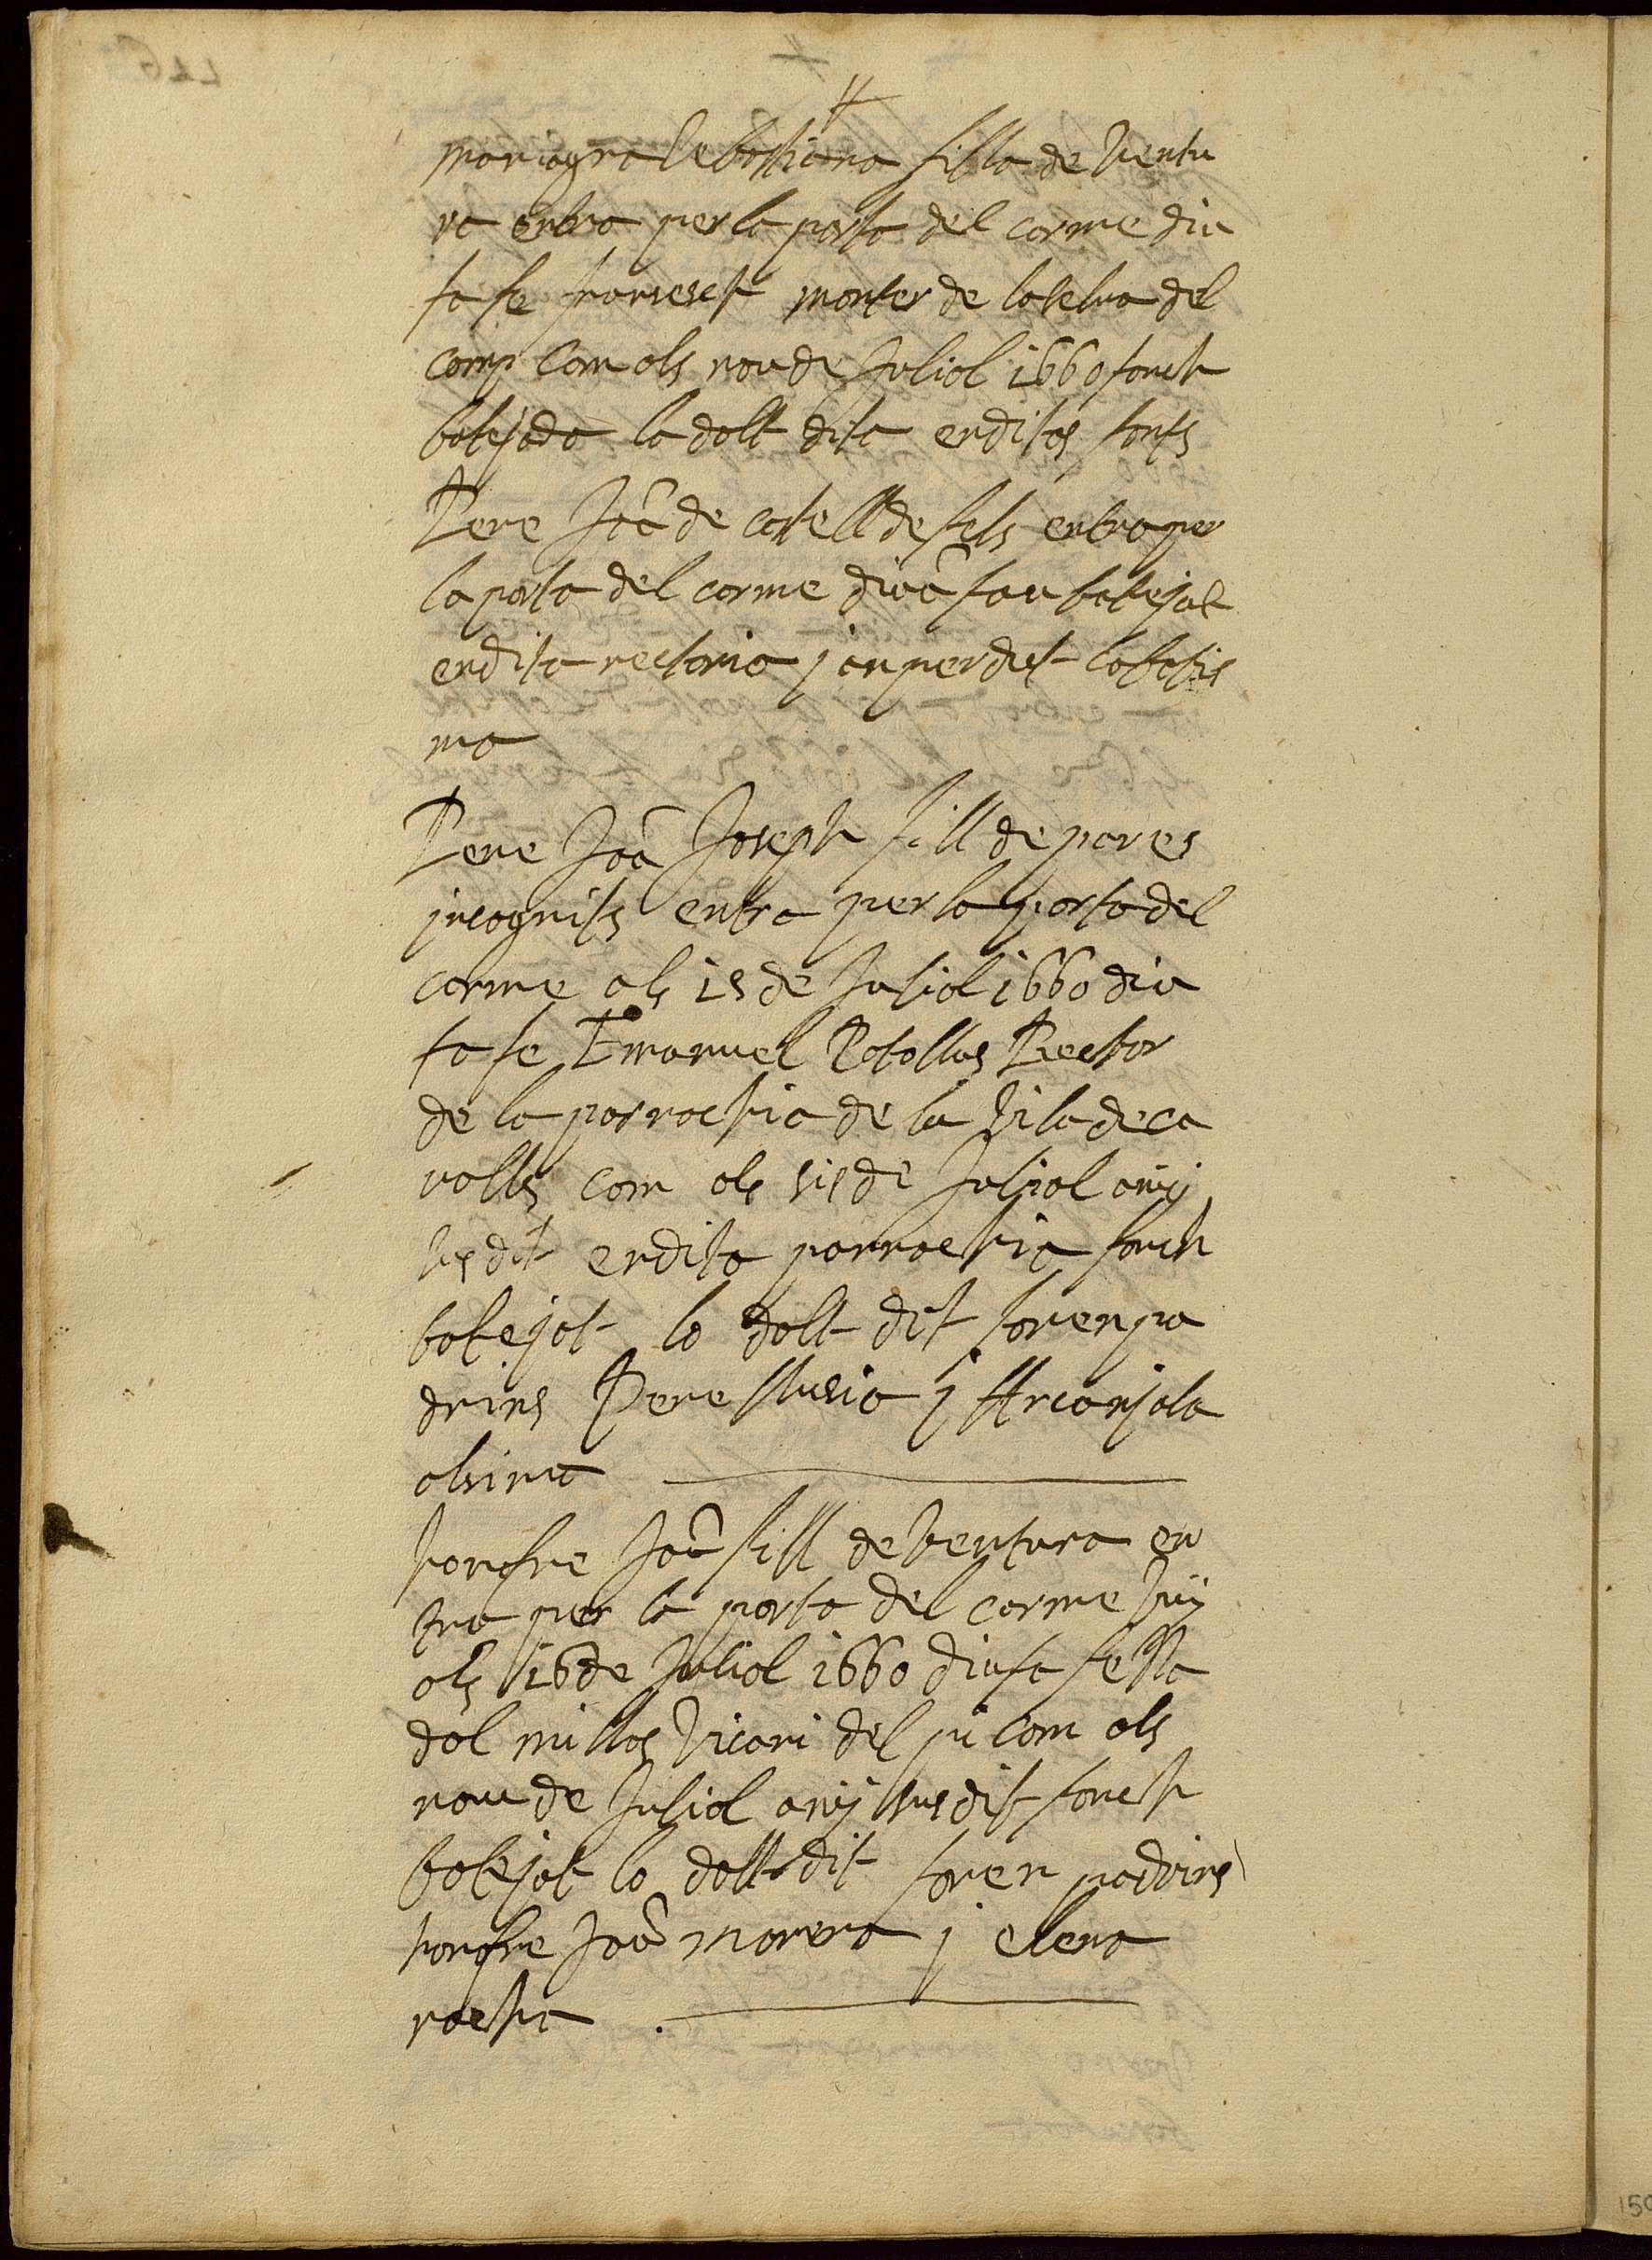 mariagna Sebastiana filla de Ventu
ra entra per la porta del carme diu
fa fe fransesch monter de la selva del
camp Com als nou de Juliol 1660 fonch
batejada la dalt dita en ditas fonts
Pere Joã de castell de fels entra per
la porta del carme diuẽ fou batejat
en dita rectoria j an perdut lo batis
ma
Pere Joã Joseph fill de pares
incognits entra per la porta del
carme als 15 de Juliol 1660 diu
fa fe Emanuel Rotallus Rector
de la parrochia de la Vila de ca
valls com als sis de Juliol anÿ
susdit en dita parrochia fonch
batejat lo dalt dit foren pa
drins Pere Llusia j Arcanjala
alsina
honofre Joã fill de Ventura en
tra per la porta del carme vuÿ
als 16 de Juliol 1660 diu fa fe
dalmillas Vicari del pi com als
nou de Juliol anÿ susdit fonch
batejat lo dalt dit foren padrins
honofre Joã marera j elena
rocha